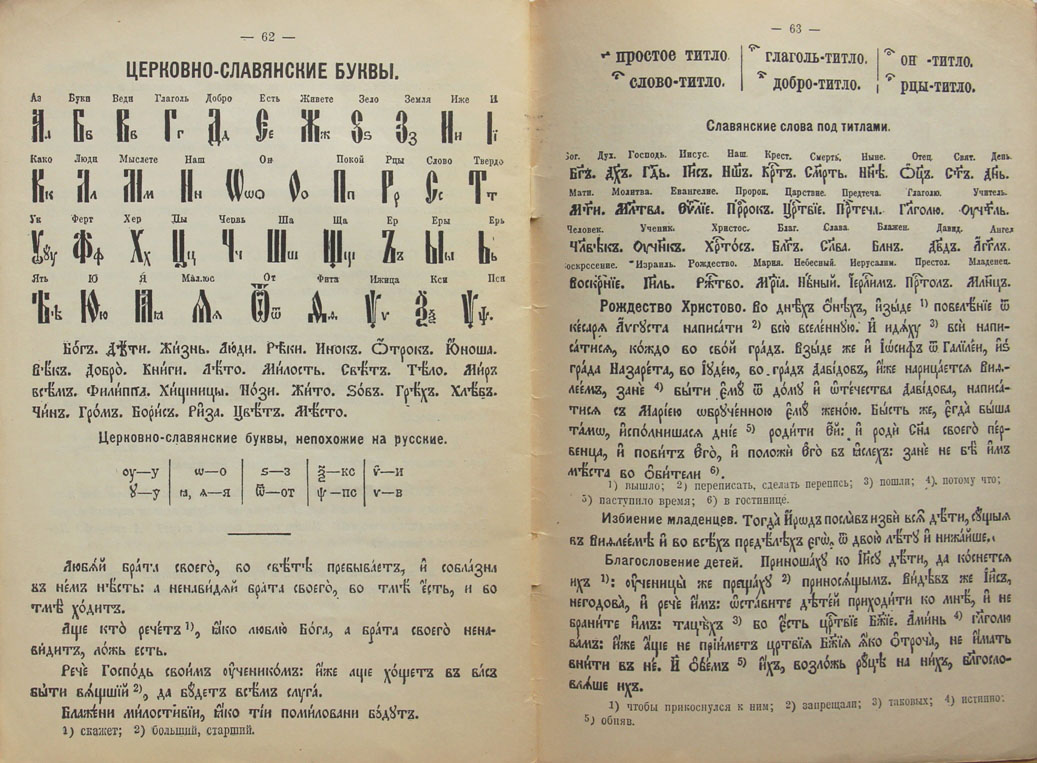 — 62 —
ЦЕРКОВНО-СЛАВЯНСКІЯ БУКВЫ.
Аз Буки Веди Глаголь Добро Есть Живете Зело Земля Иже И
Аа Бб Вв Гг Дд Єе Жж Ѕѕ Зз Ии Її
Како Люди Мыслете Наш Он Покой Рцы Слово Твердо
Кк Лл Мм Нн Ѡѡѻ Оо Пп Рр Сс Тт
Ук Ферт Хер Цы Червь Ша Ща Ер Еры Ерь
Ꙋꙋу Фф Хх Цц Чч Шш Щщ Ъъ Ыы Ьь
Ять Ю Я Мал.юс От Фита Ижица Кси Пси
Ѣѣ Юю Ꙗꙗ Ѧѧ Ѿѿ Ѳѳ Ѵѵ Ѯѯ Ѱѱ.
Бо́гъ. Дѣ́ти. Жи́знь. Лю́ди. Рѣ́ки. И́нокъ. Ѻ҆́трокъ. Ю҆́ноша.
Вѣ́къ. Добро̀. Кни́ги. Лѣ́то. Ми́лость. Свѣ́тъ. Тѣ́ло. Ми́ръ
всѣ́мъ. Фили́ппа. Хи́щницы. Но́зи. Жи́то. Ѕо́въ. Грѣ́хъ. Хлѣ́въ.
Чи́нъ. Гро́мъ. Бори́съ. Ри́за. Цвѣ́тъ. Мѣ́сто.
Церковно-славянские буквы, непохожие на русские.
оу—у ѡ—о ѕ—з ѯ—кс ѷ—и
ꙋ—у ꙗ, ѧ—я ѿ—от ѱ—пс ѵ—в
Любѧ́й бра́та своего̀, во свѣ́тѣ пребыва́етъ, и҆ собла́зна
въ не́мъ нѣ́сть: а ненави́дѧй бра́та своего̀, во тмѣ̀ є҆́сть, и во
тмѣ̀ хо́дитъ.
А҆́ще кто̀ рече́тъ 1), ꙗ҆́кѡ люблю̀ Бо́га, а бра́та своего̀ нена-
ви́дитъ, ло́жь есть.
Речѐ Госпо́дь свои̑мъ ᲂу҆ченикѡ́мъ: и҆́же а҆́ще хо́щетъ въ ва́съ
бы́ти вѧ́щшїй 2), да бꙋ́детъ всѣ́мъ слꙋга̀.
Блаже́ни ми́лостивїи, ꙗ҆́кѡ ті́и поми́ловани бꙋ́дꙋтъ.
1) скажет; 2) больший, старший.
— 63 —
простое титло. глаголь-титло. он -титло.
слово-титло. добро-титло. рцы-титло.
Славянские слова под титлами.
Бог. Дух. Господь. Иисус. Наш. Крест. Смерть. Ныне. Отец. Свят. День.
Бг҃ъ. Дх҃ъ. Гд҇ь. І҆и҃съ. Нш҃ъ. Крⷭ҇тъ. См҃рть. Нн҃ѣ. Ѻ҆ц҃ъ. Ст҃ъ. Дн҃ь.
Мати. Молитва. Евангелие. Пророк. Царствие. Предтеча. Глаголю. Учитель.
Мт҃и. Мл҃тва. Е҆ѵⷢ҇лїе. Прⷪ҇рокъ. Црⷭ҇твїе. Прⷣтеча. Гл҃голю. Оу҆чт҃ль.
Человек. Ученик. Христос. Благ. Слава. Блажен. Давид. Ангел
Чл҃вѣкъ. Оу҆чн҃къ. Хрⷭ҇то́съ. Бл҃гъ. Сл҃ва. Бл҃нъ. Дв҃дъ. А҆гг҃лъ.
Израиль. Рождество. Мария. Небесный. Иерусалим. Престол. Младенец.
Воскрⷭ҇нїе. І҆и҃ль. Рж҇тво. Мр҃їа. Нб҇ный. І҆ер҇лимъ. Прⷭ҇толъ. Млⷣнцъ.
Рождество Христово. Во дне́хъ ѻ҆́нѣхъ, и҆зы́де 1) повелѣ́нїе ѿ
ке́сарѧ А҆́ѵгꙋста написа́ти 2) всю̀ вселе́ннꙋю. И҆ и҆дѧ́хꙋ 3) всѝ напи-
са́тисѧ, ко́ждо во сво́й гра́дъ. Взы́де же и҆ І҆ѡ́сифъ ѿ Галїле́и, и҆з̾
гра́да Назаре́та, во і҆ꙋде́ю, во гра́дъ Даві́довъ, и҆́же нарица́етсѧ Виѳ-
лее́мъ, занѐ 4) бы́ти є҆мꙋ̀ ѿ до́мꙋ и҆ ѻ҆те́чества Даві́дова, написа́-
тисѧ съ Марі́ею ѡ҆брꙋ́ченною є҆мꙋ̀ жено́ю. Бы́сть же, є҆гда̀ бы́ша
та́мѡ, и҆спо́лнишасѧ дні́е 5) роди́ти є҆́й: и҆ родѝ Сн҃а своего̀ пе́р-
венца, и҆ пови́тъ Е҆го̀, и҆ положѝ Е҆го̀ въ ꙗ҆́слехъ: занѐ не бѣ̀ и҆̀мъ
мѣ́ста во ѻ҆би́тели 6).
1) вышло; 2) переписать, сделать перепись; 3) пошли; 4). потому что;
5) наступило время; 6) в гостинице.
Избиение младенцев. Тогда̀ И҆́рѡдъ посла́въ и҆збѝ всѧ̑ дѣ́ти, сꙋ́щыѧ
въ Виѳлее́мѣ и҆ во всѣ́хъ предѣ́лѣхъ є҆гѡ̀, ѿ двою̀ лѣ́тꙋ и҆ нижа́йше.
Благословение детей. Приноша́хꙋ ко І҆и҃сꙋ дѣ́ти, да ко́снетсѧ
и҆́хъ 1): ᲂу҆чн҃цы̀ же преща́хꙋ 2) приносѧ́щымъ. Ви́дѣвъ же І҆и҃съ,
негодова̀, и҆ речѐ и҆̀мъ: ѡ҆ста́вите дѣте́й приходи́ти ко мнѣ̀, и҆ не
брани́те и҆̀мъ: таце́хъ 3) во є҆́сть црⷭ҇твїе Бж҃їе. А҆ми́нь 4) гл҃голю
ва́мъ: и҆́же а҆́ще не прїи́метъ црⷭ҇твїѧ Бж҃їѧ ꙗ҆́кѡ ѻ҆троча̀, не и҆́мать
вни́ти въ нѐ. И҆ ѻ҆бе́мъ 5) и҆́хъ, возло́жь рꙋ́цѣ на ни́хъ, бл҃госло-
влѧ́ше и҆́хъ.
1) чтобы прикоснулся к ним; 2) запрещали; 3) таковых; 4) истинно;
5) обняв.